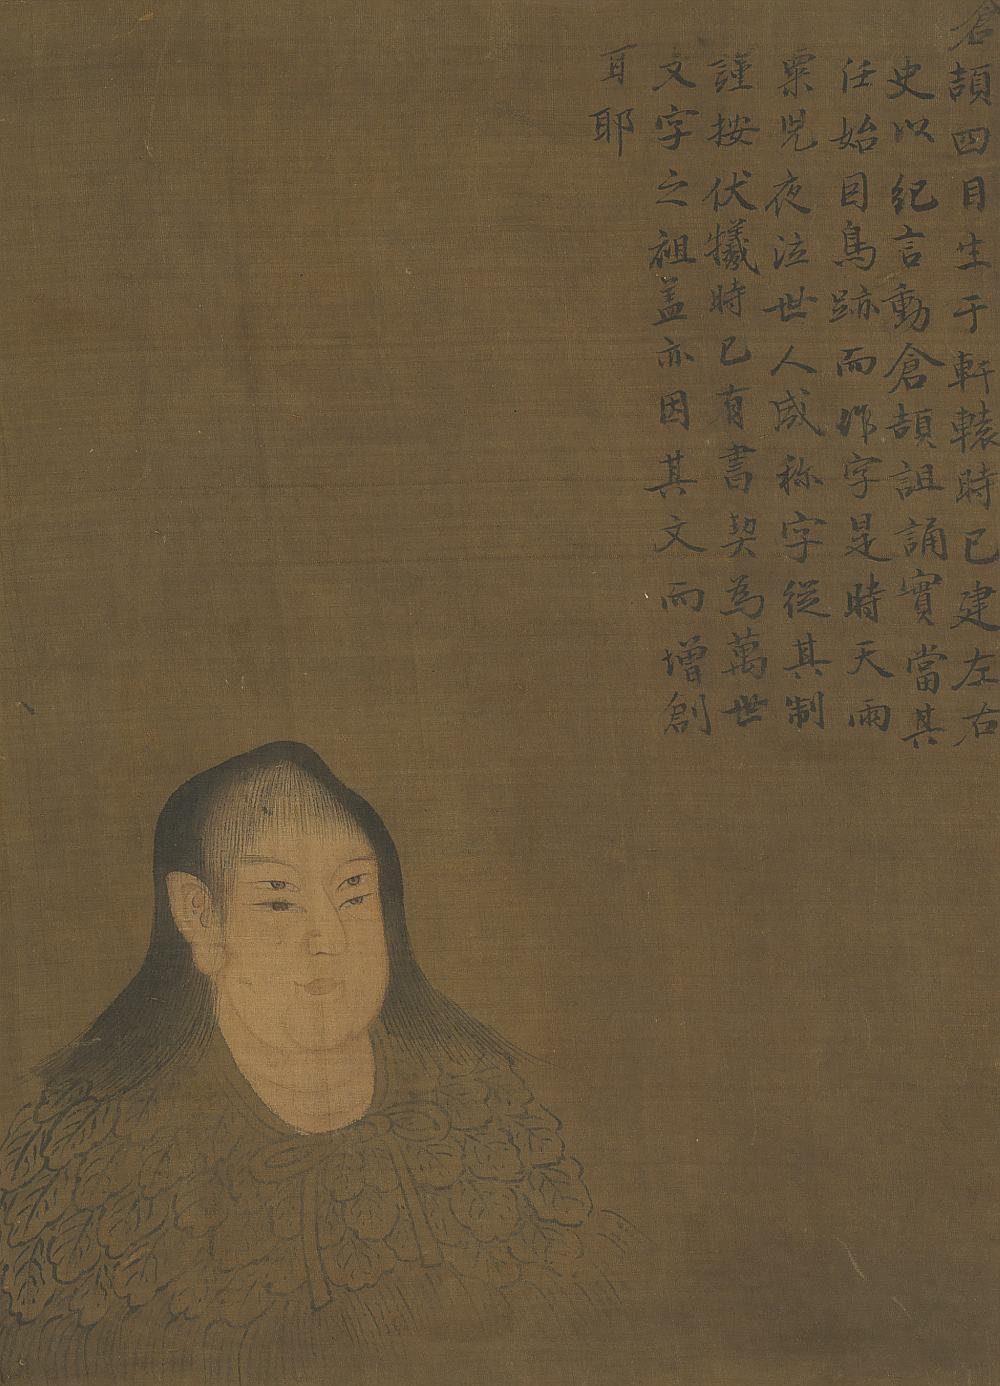 倉頡四目生于軒轅時已建左右
史以紀言動倉頡詛誦實當其
任始目鳥跡而作字是時天雨
粟鬼夜泣世人咸称字從其制
謹按伏犧時已有書契為萬世
文字之祖盖亦因其文而增創
耳耶